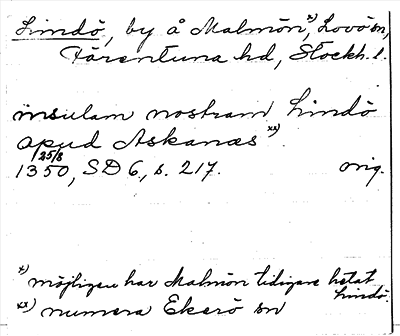 Lindö, by å Malmön x), Lovö sn,
Färentuna hd, Stockh. l.
insulam nostram Lindö
apud Askanæs xx)
25/8
1350, SD 6, s. 217. orig.
x) möjligen har Malmön tidigare hetat
Lindö.
xx) numera Ekerö sn